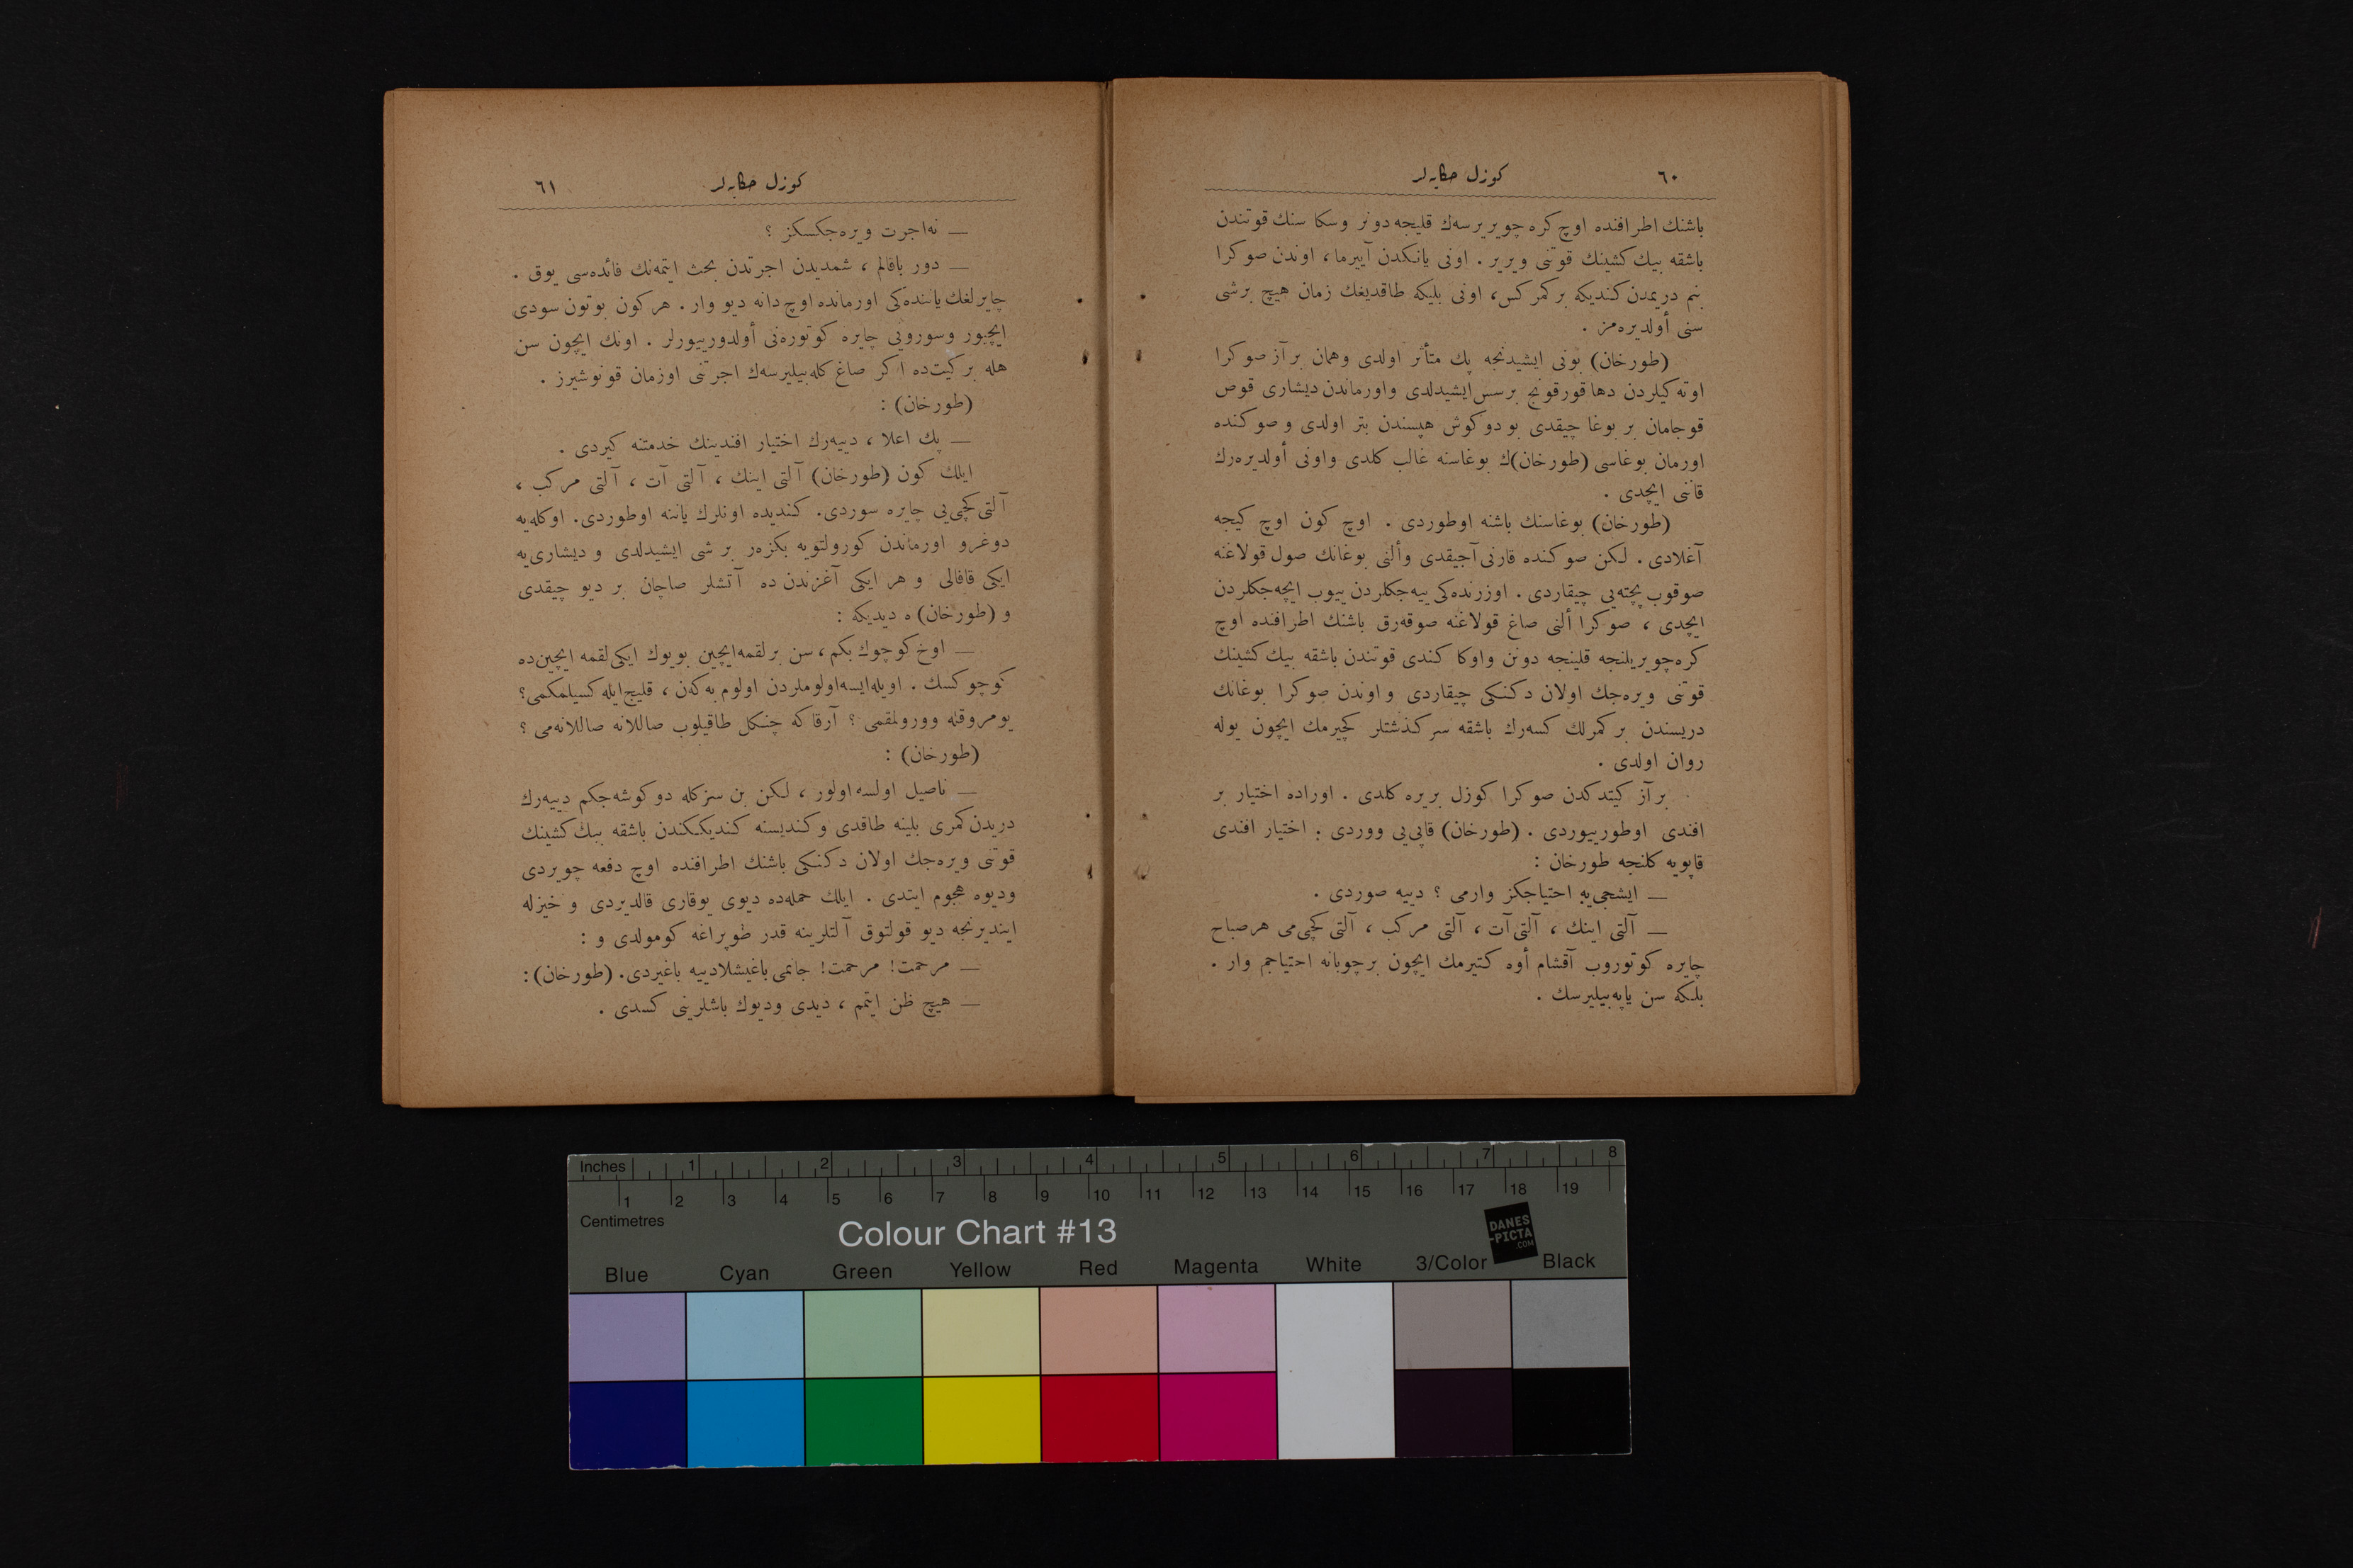 ٦٠
كوزل حكایه‌لر
باشنك اطرافنده اوچ كره چویریرسه‌ك قلیجه دونر وسكا سنك قوتندن
باشقه بیك كشینك قوتنی ویریر . اونی یانكدن آییرما ، اوندن صوكرا
بنم دریمدن كندیكه بر كمر كس، اونی بلیكه طاقدیغك زمان هیچ برشی
سنی أولدیره‌مز .
(طورخان) بونی ایشیدنجه پك متأثر اولدی وهمان بر آز صوكرا
اوته‌كیلردن دها قورقونج برسس ایشیدلدی واورماندن دیشاری قوص
قوجامان بر بوغا چیقدی بو دوكوش هپسندن بتر اولدی و صوكنده
اورمان بوغاسی (طورخان)ك بوغاسنه غالب كلدی واونی أولدیره‌رك
قاننی ایچدی .
(طورخان) بوغاسنك باشنه اوطوردی . اوچ كون اوچ كیجه
آغلادی . لكن صوكنده قارنی آجیقدی وألنی بوغانك صول قولاغنه
صوقوب پچته‌یی چیقاردی . اوزرنده‌كی ییه‌جكلردن ییوب ایچه‌جكلردن
ایچدی ، صوكرا ألنی صاغ قولاغنه صوقه‌رق باشنك اطرافنده اوچ
كره چویریلنجه قلینجه دونن واوكا كندی قوتندن باشقه بیك كشینك
قوتنی ویره‌جك اولان دكنكی چیقاردی و اوندن صوكرا بوغانك
دریسندن بر كمرلك كسه‌رك باشقه سركذشتلر كچیرمك ایچون یوله
روان اولدی .
بر آز كیتدكدن صوكرا كوزل بریره كلدی . اوراده اختیار بر
افندی اوطورییوردی . (طورخان) قاپی‌یی ووردی . اختیار افندی
قاپویه كلنجه طورخان :
— ایشجی‌یه احتیاجكز وارمی ؟ دییه صوردی .
— آلتی اینك ، آلتی آت ، آلتی مركب ، آلتی كچی‌می هر صباح
چایره كوتوروب آقشام أوه كتیرمك ایچون برچوبانه احتیاجم وار .
بلكه سن یاپه‌بیلیرسك .
كوزل حكایه‌لر
٦١
— نه اجرت ویره‌جكسكز ؟
— دور باقالم ، شمدیدن اجرتدن بحث ایتمه‌نك فائده‌سی یوق .
چایرلغك یاننده‌كی اورمانده اوچ دانه دیو وار . هر كون بوتون سودی
ایچییور وسورویی چایره كوتوره‌نی أولدورییورلر . اونك ایچون سن
هله بر كیت‌ده اكر صاغ كله‌بیلیرسه‌ك اجرتنی اوزمان قونوشیرز .
(طورخان) :
— پك اعلا ، دییه‌رك اختیار افندینك خدمتنه كیردی .
ایلك كون (طورخان) آلتی اینك ، آلتی آت ، آلتی مركب ،
آلتی كچی‌یی چایره سوردی. كندیده اونلرك یاننه اوطوردی. اوكله‌یه
دوغرو اورماندن كورولتویه بكزه‌ر بر شی ایشیدلدی و دیشاری‌یه
ایكی قافالی و هر ایكی آغزندن ده آتشلر صاچان بر دیو چیقدی
و (طورخان) ه دیدیكه :
— اوخ كوچوك بكم ، سن بر لقمه ایچین بویوك ایكی لقمه ایچین‌ده
كوچوكسك . اویله ایسه اولوملردن اولوم به‌كه‌ن ، قلیج ایله كسیلمكمی؟
یومروقله وورولمقمی ؟ آرقاكه چنكل طاقیلوب صاللانه صاللانه‌می ؟
(طورخان) :
— ناصیل اولسه اولور ، لكن بن سزكله دوكوشه‌جكم دییه‌رك
دریدن كمری بلینه طاقدی وكندیسنه كندیكندن باشقه بیك كشینك
قوتنی ویره‌جك اولان دكنكی باشنك اطرافنده اوچ دفعه چویردی
ودیوه هجوم ایتدی . ایلك حمله‌ده دیوی یوقاری قالدیردی و خیزله
ایندیرنجه دیو قولتوق آلتلرینه قدر طوپراغه كومولدی و :
— مرحمت! مرحمت! جانمی باغیشلا دییه باغیردی. (طورخان):
— هیچ ظن ایتمم ، دیدی ودیوك باشلرینی كسدی .
Inches 1 2 3 4 5 6 7 8
1 2 3 4 5 6 7 8 9 10 11 12 13 14 15 16 17 18 19
Centimetres
Colour Chart #13
DANES
-PICTA
.COM
Blue Cyan Green Yellow Red Magenta White 3/Color Black